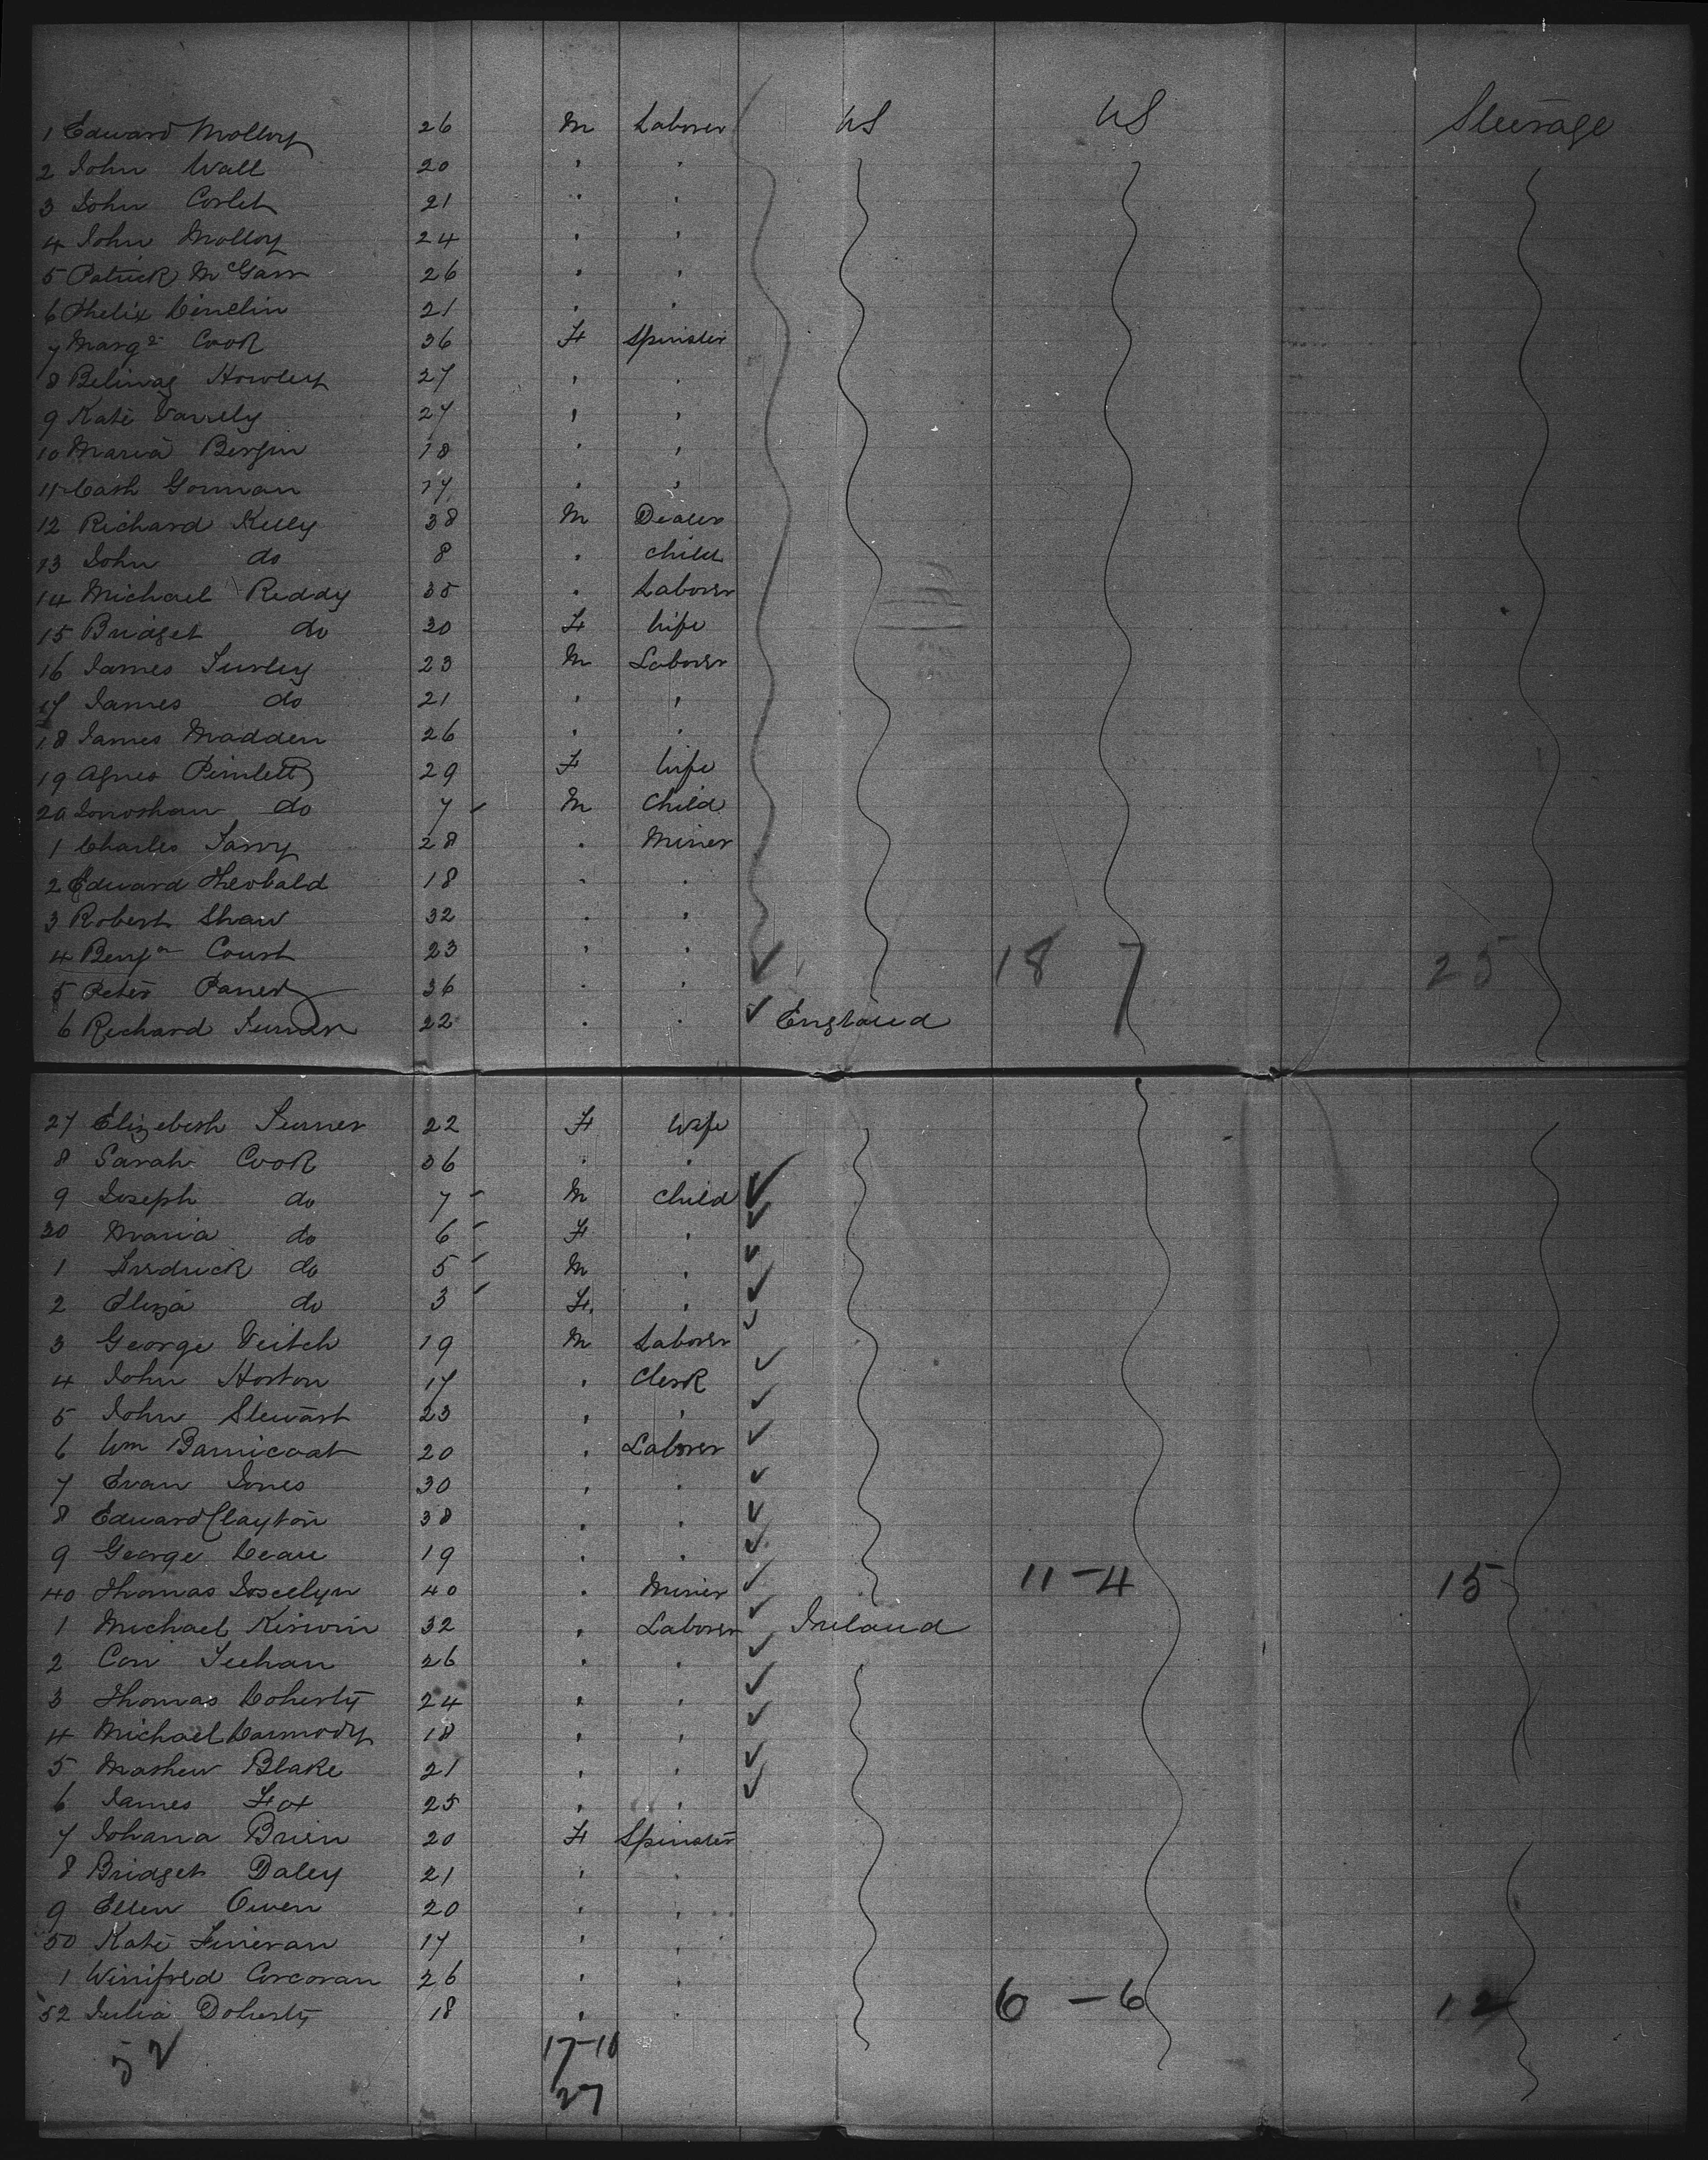 1 Edward Molloy 26 M Laborer US US Steerage
2 John Wall 20 " "
3 John Corlet 21 " "
4 John Molloy 24 " "
5 Patrick McGarr 26 " "
6 Phelix 21 " "
7 Marg't Cook 36 F Spinster
8 Howley 27 " "
9 Kate 27 " "
10 Maria Bergin 18 " "
11 Cath Gorman 17 " "
12 Richard Kelly 38 M Dealer
13 John do 8 " Child
14 Michael Reddy 35 " Laborer
15 Bridget do 30 F Wife
16 James 23 M Laborer
17 James do 21 " "
18 James Madden 26 " "
19 Agnes 29 F Wife
20 do 7 M Child
1 Charles 28 " Miner
2 Edward Theobald 18 " "
3 Robert Shaw 32 " "
4 Benj'n Court 23 " " 18 7 25
5 Peter 36 " "
6 Richard 22 " " England
27 Elizebeth Turner 22 F Wife
8 Sarah Cook 36 " "
9 Joseph do 7 M Child
30 Maria do 6 F "
1 do 5 M "
2 Eliza do 3 F. "
3 George Veitch 19 M Laborer
4 John Horton 17 " Clerk
5 John Stewart 23 " "
6 Wm Barnicoat 20 " Laborer
7 Evan Jones 30 " "
8 Edward Clayton 38 " "
9 George Dean 19 " "
40 Thomas Joscelyn 40 " Miner 11-4 15
1 Michael Kirwin 32 " Laborer Ireland
2 Con 26 " "
3 Thomas Doherty 24 " "
4 Michael Darmody 18 " "
5 Mathew Blake 21 " "
6 James Fox 25 " "
7 Johana Brien 20 F Spinster
8 Bridget Daley 21 " "
9 Ellen Owen 20 " "
50 Kate Fineran 17 " "
1 Winifred Corcoran 26 " "
52 Julia Doherty 18 " " 6 - 6 12
52 17-10
27